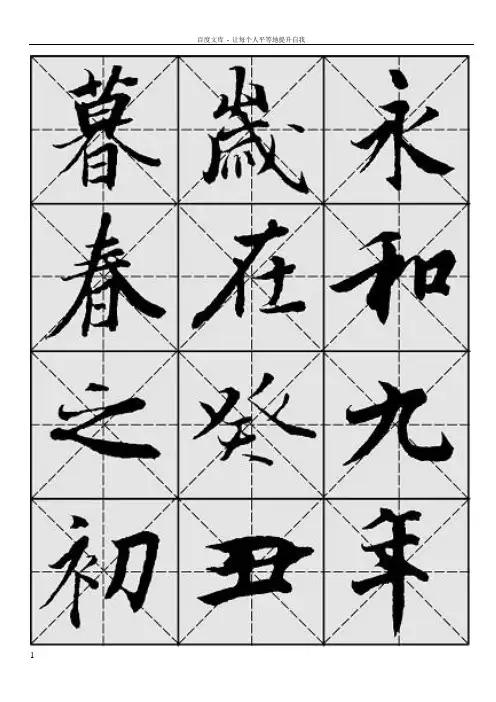 百度文库 - 让每个人平等地提升自我
永和九年
歲在癸丑
暮春之初
1